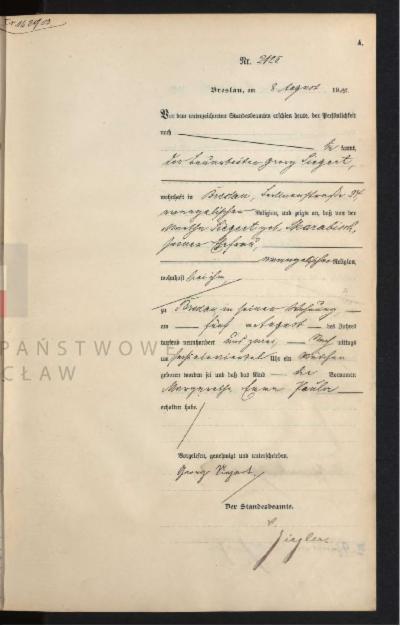 A.
Nr. 2128
Breslau, am 8 August 19
Vor dem unterzeichneten Standesbeamten erschien heute, der Persönlichkeit
nach
kannt,
der Georg Siegert,
wohnhaft in Breslau,
evangelischer Religion, und zeigte an, daß von der
Martha Siegert geb.
seiner Ehefrau,
evangelischer Religion,
wohnhaft bei ihm
zu Breslau in seiner Wohnung,
am fünf August des Jahres
tausend neunhundert und zwei, Nach mittags
um Uhr ein Mädchen
geboren worden sei und daß das Kind die Vornamen
Margarethe Emma Paula
erhalten habe.
Vorgelesen, genehmigt und unterschrieben.
Georg Siegert.
Der Standesbeamte.
Ziegler
PAŃSTWOWE
CŁAW